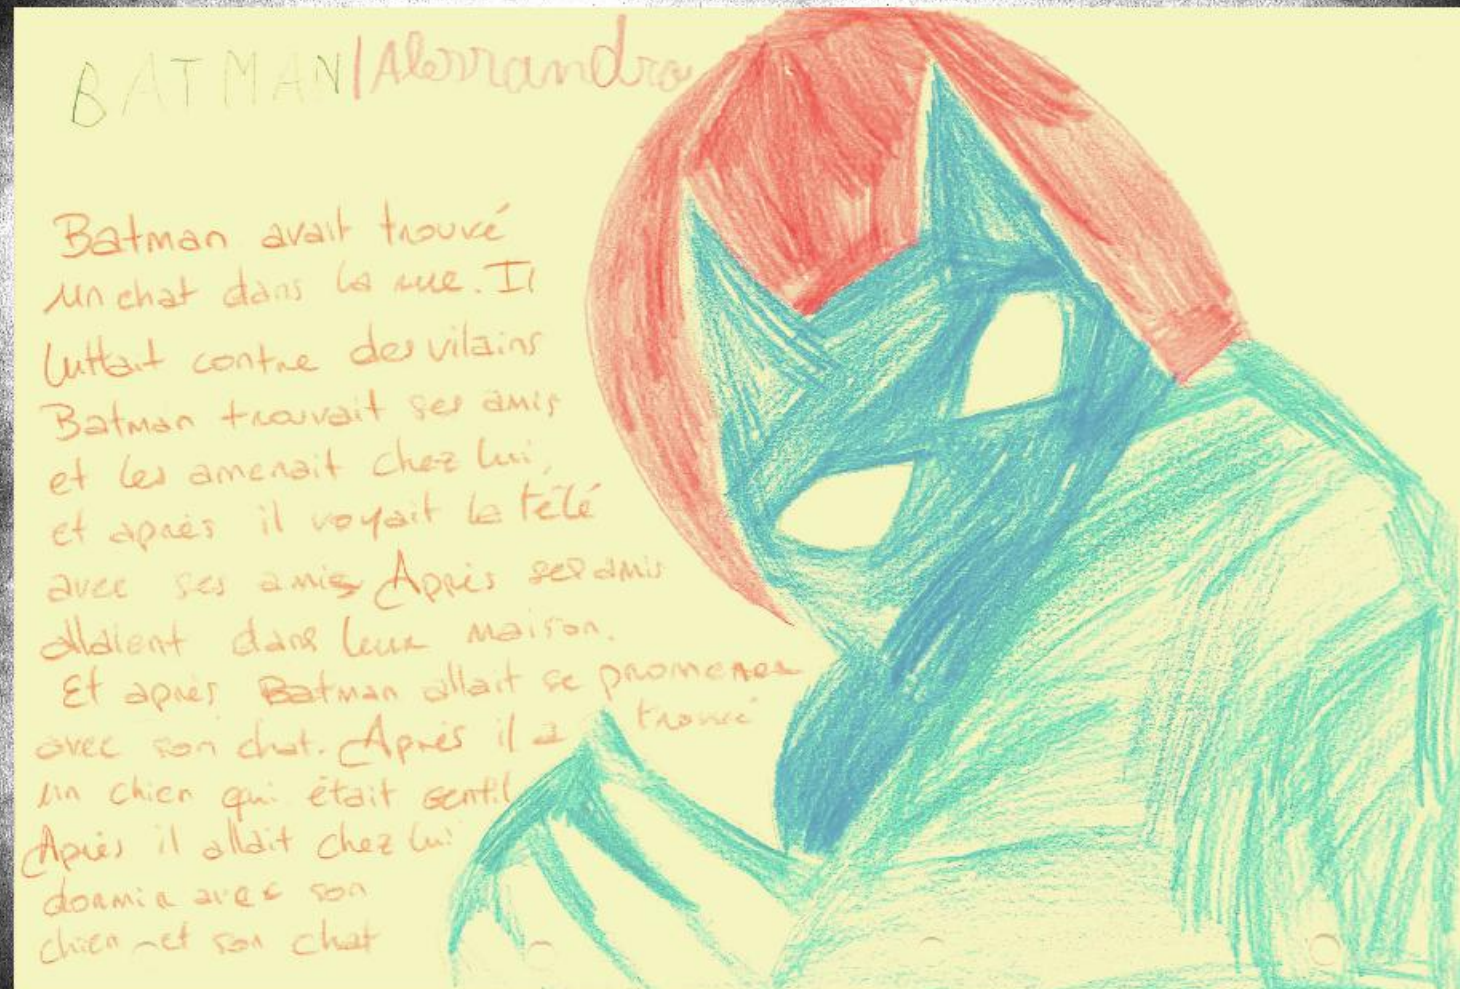 BATMAN/Alessandro
Batman avait trouvé
un chat dans la rue. Il
luttait contre des vilains
Batman trouvait ses amis
et les amenait chez lui,
et après il voyait la télé
avec ses amis Après ses amis
allaient dans leur maison.
Et après Batman allait se promener
avec son chat. Après il a trouvé
un chien qui était gentil
Après il allait chez lui
dormir avec son
chien et son chat